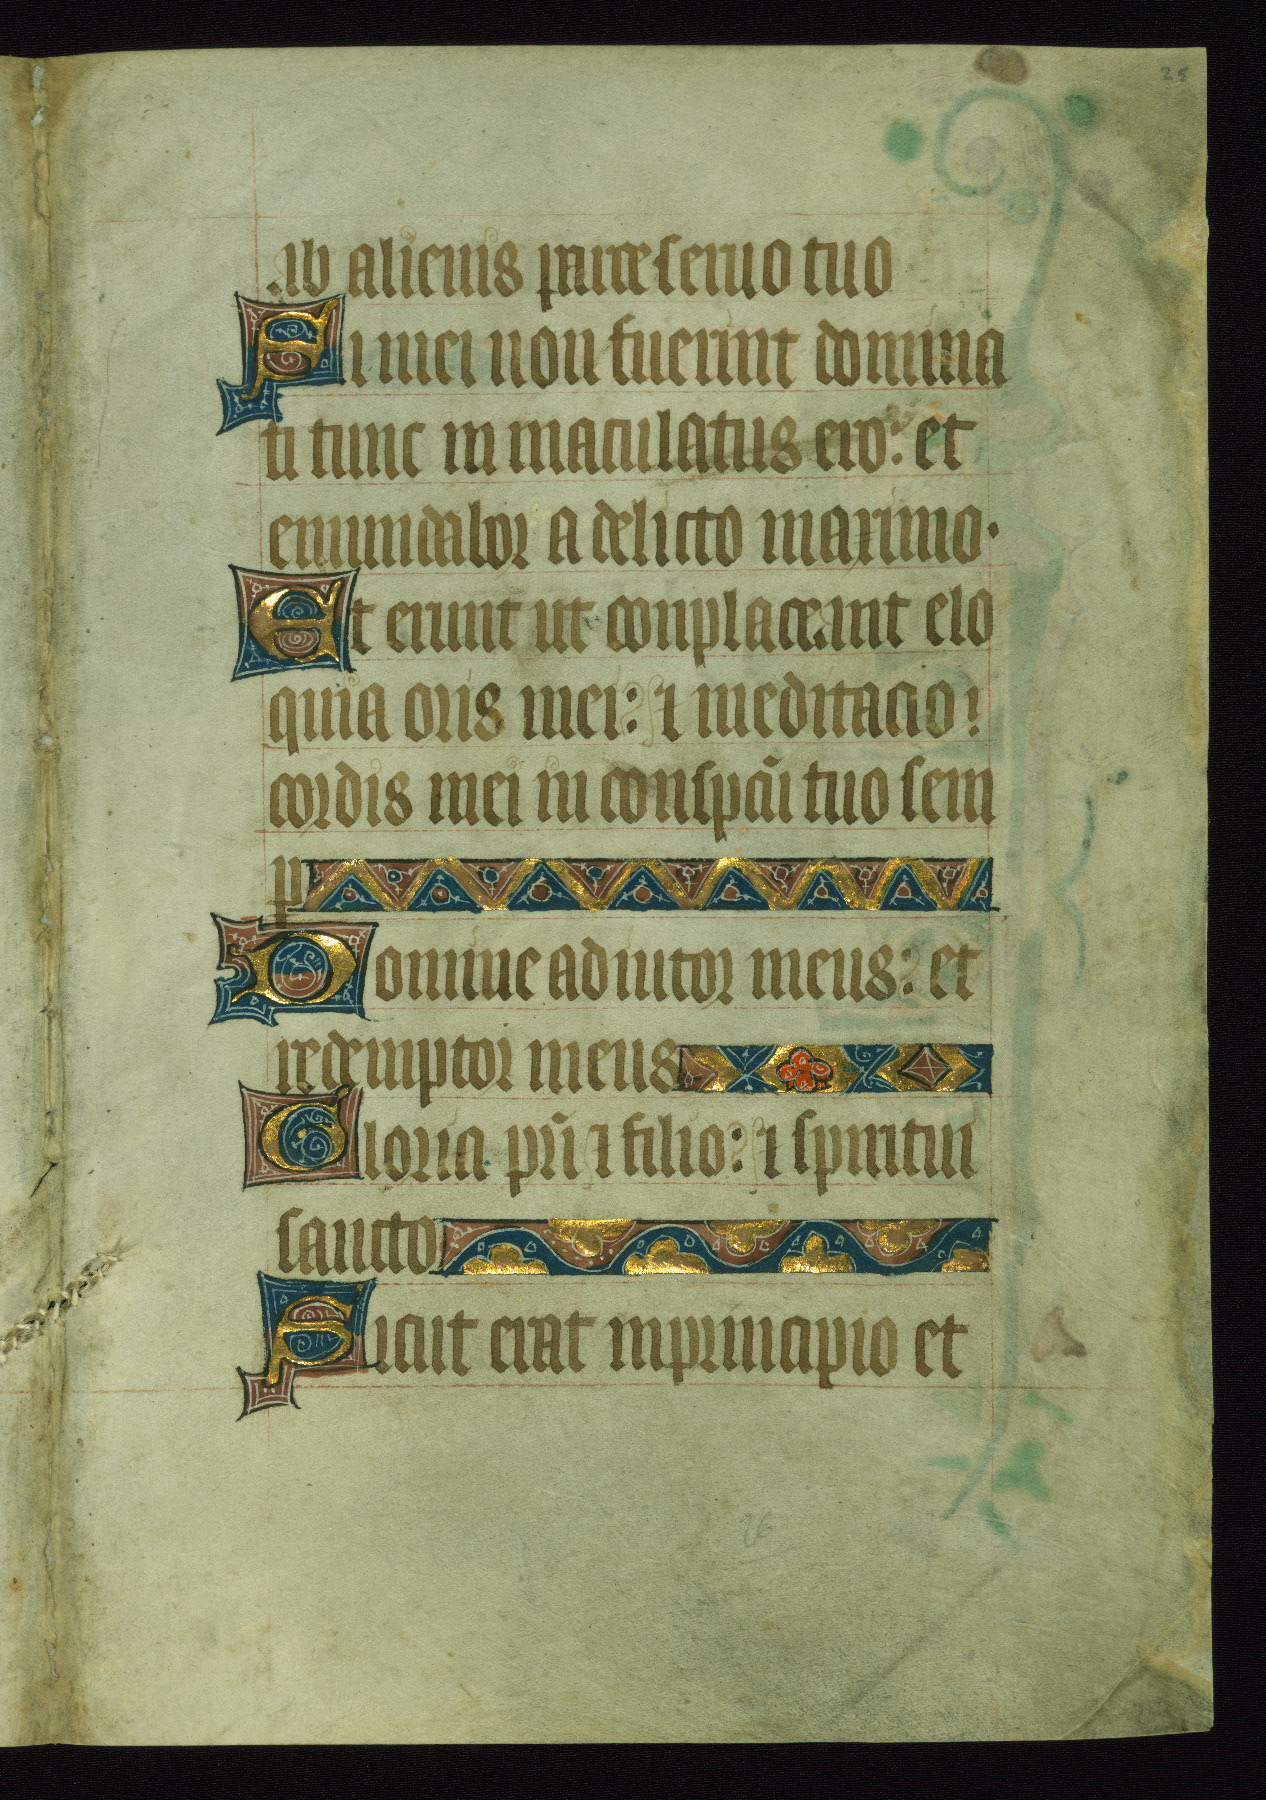 25
Ab alienis parce seruo tuo
Si mei non fuerint domina
ti tunc inmaculatus ero: et
emundabor a delicto maximo.
Et erunt ut conplaceant elo
quia oris mei: ⁊ meditacio
cordis mei in conspc̄ū tuo sem
p
Domine adiutor meus: et
redemptor meus
Gloria pr̄i ⁊ filio: ⁊ spiritui
sancto
Sicut erat inprincipio et
26